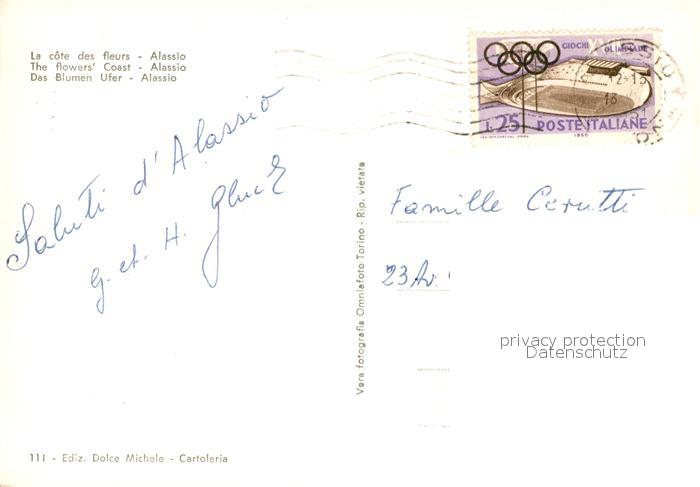 La côte des fleurs - Alassio
The flowers' Coast - Alassio
Das Blumen Ufer - Alassio
GIOCHI XVII OLIMPIADE
L. 25 POSTE ITALIANE
1960
Saluti d'Alassio
G. et. H. Gluck
Vera fotografia Omniafoto Torino - Rip. vietata
Famille Cerutti
23 Av.
privacy protection
Datenschutz
111 - Ediz. Dolce Michele - Cartoleria